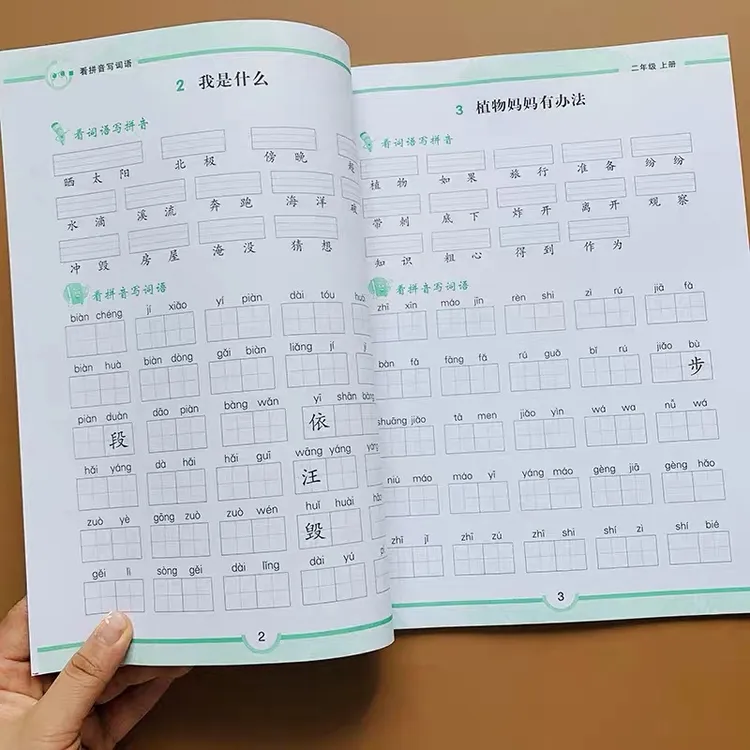 看拼音写词语
2 我是什么
看词语写拼音
晒 太 阳 北 极 傍 晚
水 滴 溪 流 奔 跑 海 洋
冲 毁 房 屋 淹 没 猜 想
看拼音写词语
biàn chéng jí xiǎo yí piàn dài tóu
biàn huà biàn dòng gǎi biàn liǎng jí
piàn duàn dāo piàn bàng wǎn yī shān bàng
段 依
hǎi yáng dà hǎi hǎi guī wāng yáng yáng
汪
zuò yè gōng zuò zuò wén huǐ huài
毁
gěi lì sòng gěi dài lǐng dài yú
2
二年级 上册
3 植物妈妈有办法
看词语写拼音
植 物 如 果 旅 行 准 备 纷 纷
带 刺 底 下 炸 开 离 开 观 察
知 识 粗 心 得 到 作 为
看拼音写词语
zhī xīn máo jīn rèn shi zì rú jiā fǎ
bàn fǎ fāng fǎ rú guǒ bǐ rú jiǎo bù
步
shuāng jiǎo tā men jiǎo yìn wá wa nǚ wá
niú máo máo yī yáng máo gèng jiā gèng hǎo
zhī jǐ zhī zú zhī shi shí zì shí bié
3